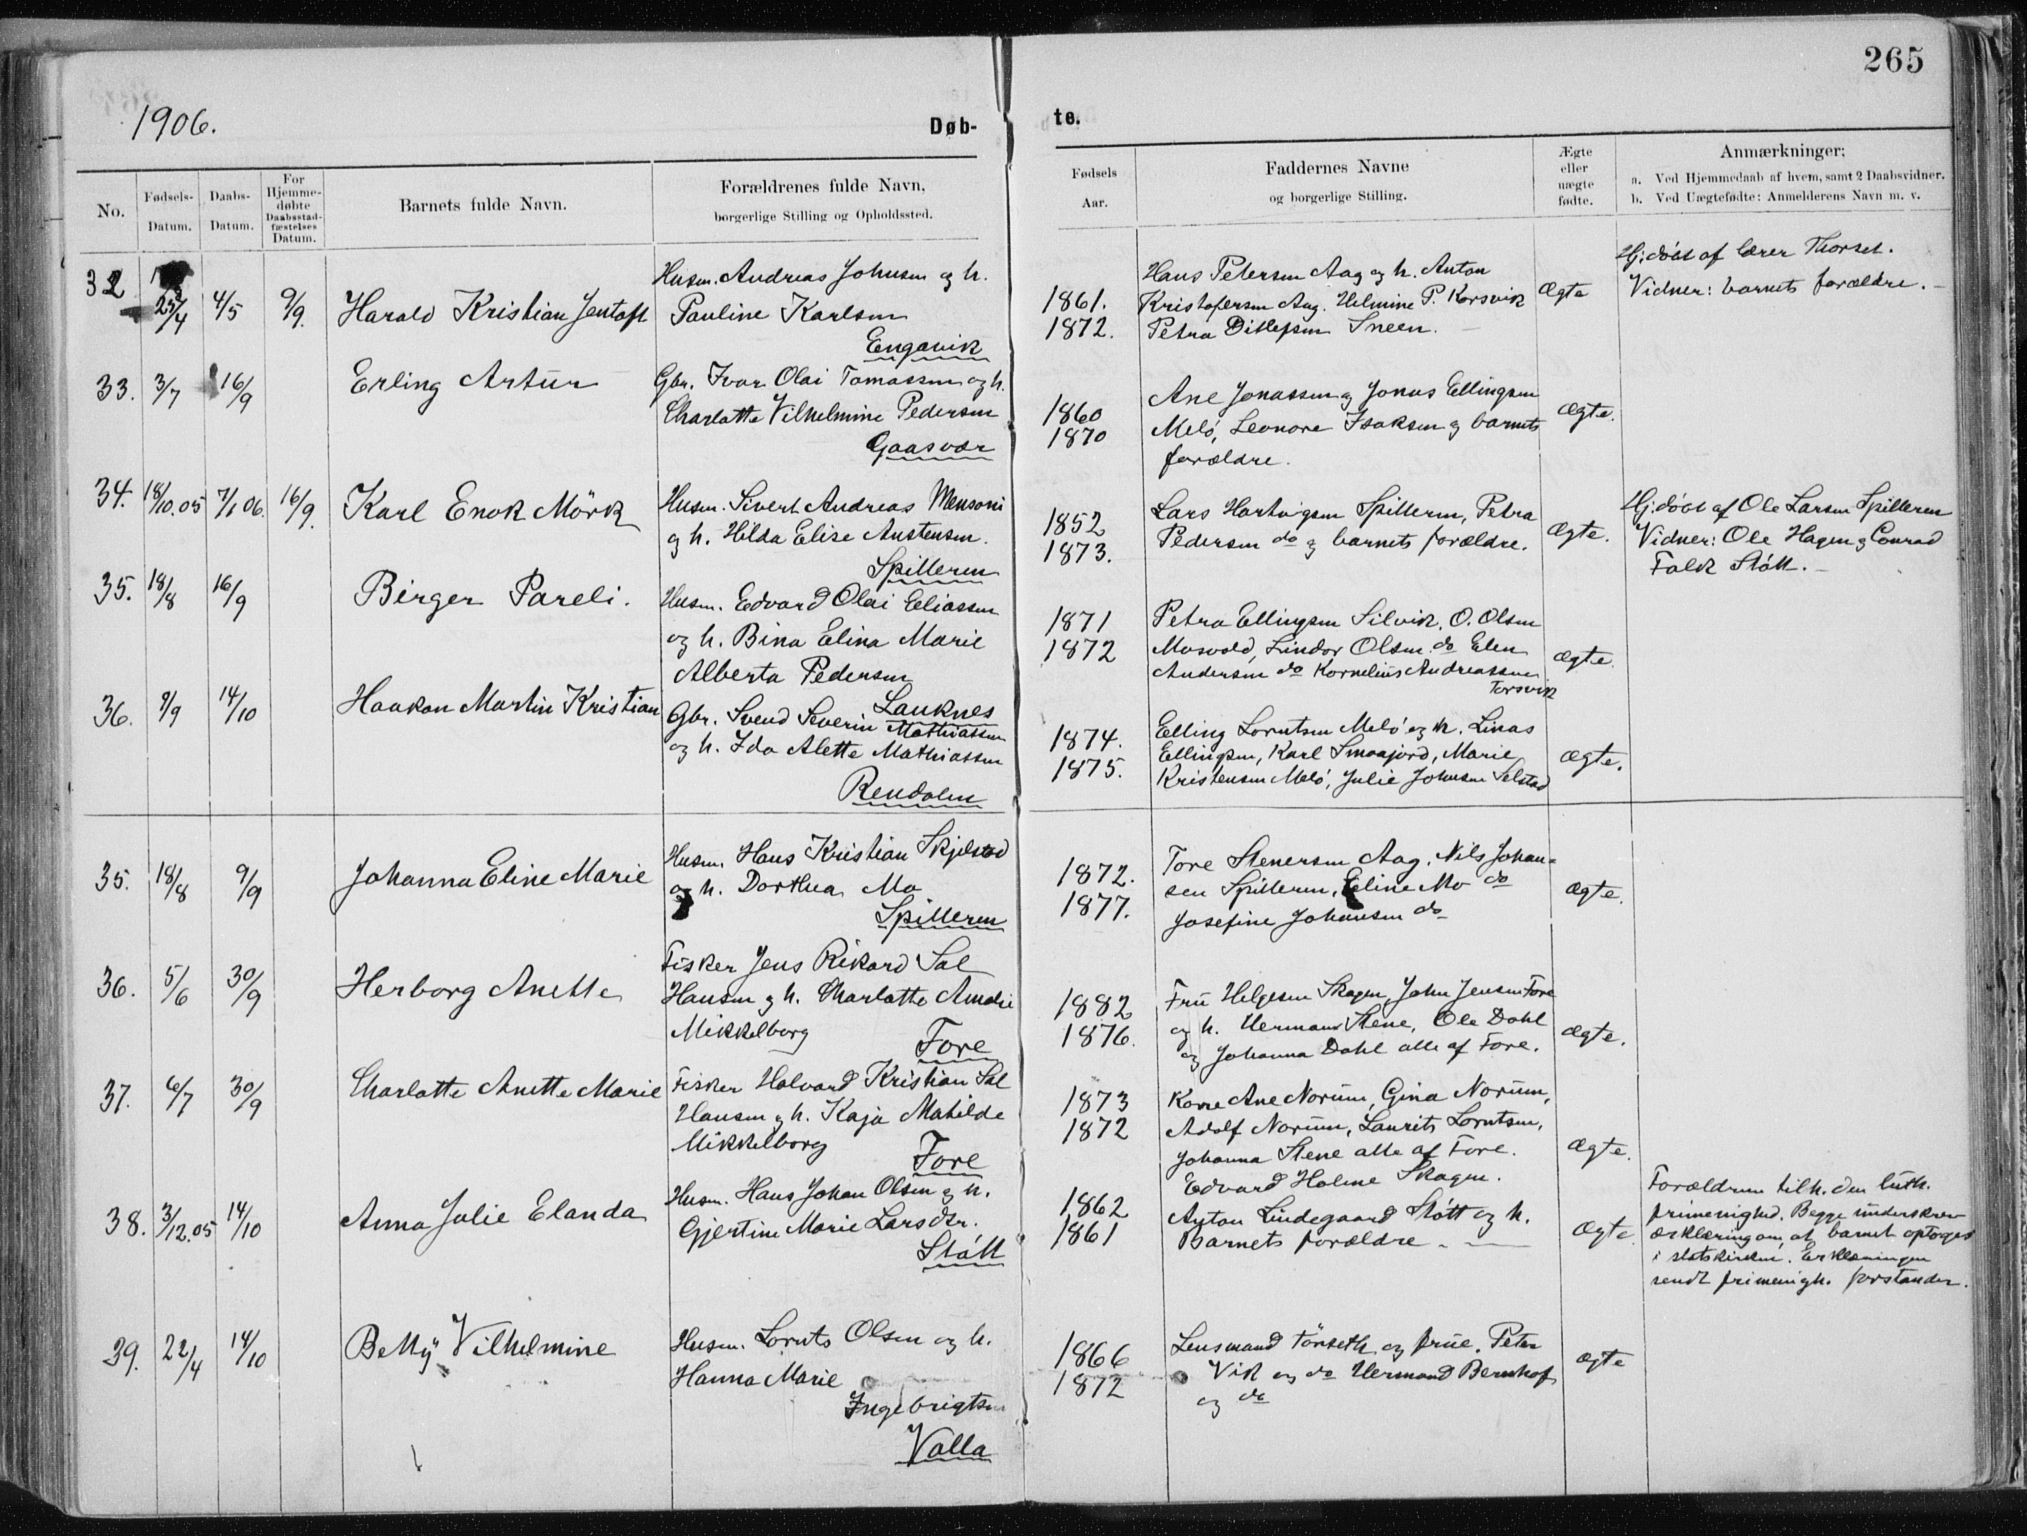 265
1906.
Døb-
te.
No.
Fødsels-
Datum.
Daabs-
Datum.
For
Hjemme-
døbte
Daabsstad-
fæstelses
Datum.
Barnets fulde Navn.
Forældrenes fulde Navn,
borgerlige Stilling og Opholdssted.
Fødsels
Aar.
Faddernes Navne
og borgerlige Stilling.
Ægte
eller
uægte
fødte.
Anmærkninger;
a. Ved Hjemmedaab af hvem, samt 2 Daabsvidner.
b. Ved Uægtefødte: Anmelderens Navn m. v.
32 23/4 4/5 9/9. Harald Kristian Jentoft
Husm. Andreas Johnsen og h.
Pauline Karlsen
Engavik
1861.
1872.
Hans Petersen Aag og h. Anton
Kristofersen Aag. Helmine P. Korsvik
Petra Ditlefsen Sneen.
Ægte
Hj:døbt af lærer Thorset.
Vidner: barnets forældre.
33. 3/7 16/9 Erling Artur
Gbr. Ivar Olai Tomassen og h.
Charlotte Vilhelmine Pedersen
Gaasvær
1860
1870
Ane Jonassen og Jonas Ellingsen
Melö, Leonore Isaksen og barnets
forældre.
Ægte.
34. 18/10.05 7/1 06. 16/9. Karl Enok Mörk
Husm. Sivert Andreas Mensoni
og h. Hilda Elise Austensen.
Spilleren
1852
1873.
Lars Hartvigsen Spilleren, Petra
Pedersen do og barnets forældre.
Ægte.
Hj:døbt af Ole Larsen Spilleren
Vidner: Ole Hagen og Conrad
Falk Stött.
35. 18/8 16/9 Birger Pareli.
Husm. Edvard Olai Eliassen
og h. Bina Elina Marie
Alberta Pedersen
Lauknes
1871
1872
Petra Ellingsen Silvik, O. Olsen
Mosvold, Lindor Olsen do Elen
Andersen do Kornelius Andreassen
Torsvik
Ægte.
36. 9/9 14/10 Haakon Martin Kristian
Gbr. Svend Severin Mathiassen
og h. Ida Alette Mathiassen
Rendalen
1874.
1875.
Elling Lorntsen Melö og h. Linas
Ellingsen, Karl Smaajord, Marie
Kristensen Melö, Julie Johnsen Selstad
Ægte.
35. 18/8 9/9 Johanna Eline Marie
Husm. Hans Kristian Skjelstad
og h. Dorthea Mo
Spilleren
1872.
1877.
Tore Stenersen Aag, Nils Johan-
sen Spilleren, Eline Mo do
Josefine Johansen do
Ægte.
36. 5/6 30/9 Herborg Anette
Fisker Jens Rikard Sal
Hansen og h. Charlotte Amalie
Mikkelborg
Fore
1882
1876.
Fru Helgesen Skagen, John Jensen Fore
og h. Herman Stene, Ole Dahl
og Johanna Dahl alle af Fore.
Ægte.
37. 6/7 30/9 Charlotte Anette Marie
Fisker Halvard Kristian Sal
Hansen og h. Kaja Matilde
Mikkelborg
Fore
1873
1872
Kone Ane Norum, Gina Norum,
Adolf Norum, Laurits Lorntsen,
Johanna Stene alle af Fore.
Ægte.
38. 3/12.05 14/10 Anna Julie Elanda
Husm. Hans Johan Olsen og h.
Gjertine Marie Larsdtr.
Stött
1862
1861
Edvard Holme Skagen.
Anton Lindegaard Stött og h.
Barnets forældre.
Ægte
Forældrene tilh. den luth.
frimenighed. Begge underskrev
erklæring om, at barnet optoges
i statskirken. Erklæringen
sendt frimenigh. forstander.
39. 22/4 14/10 Betty Vilhelmine
Husm. Lornts Olsen og h.
Hanna Marie
Ingebrigtsen
Valla
1866
1872
Lensmand Törseth og frue. Peter
Vik og do Herman Bernhof
og do
Ægte